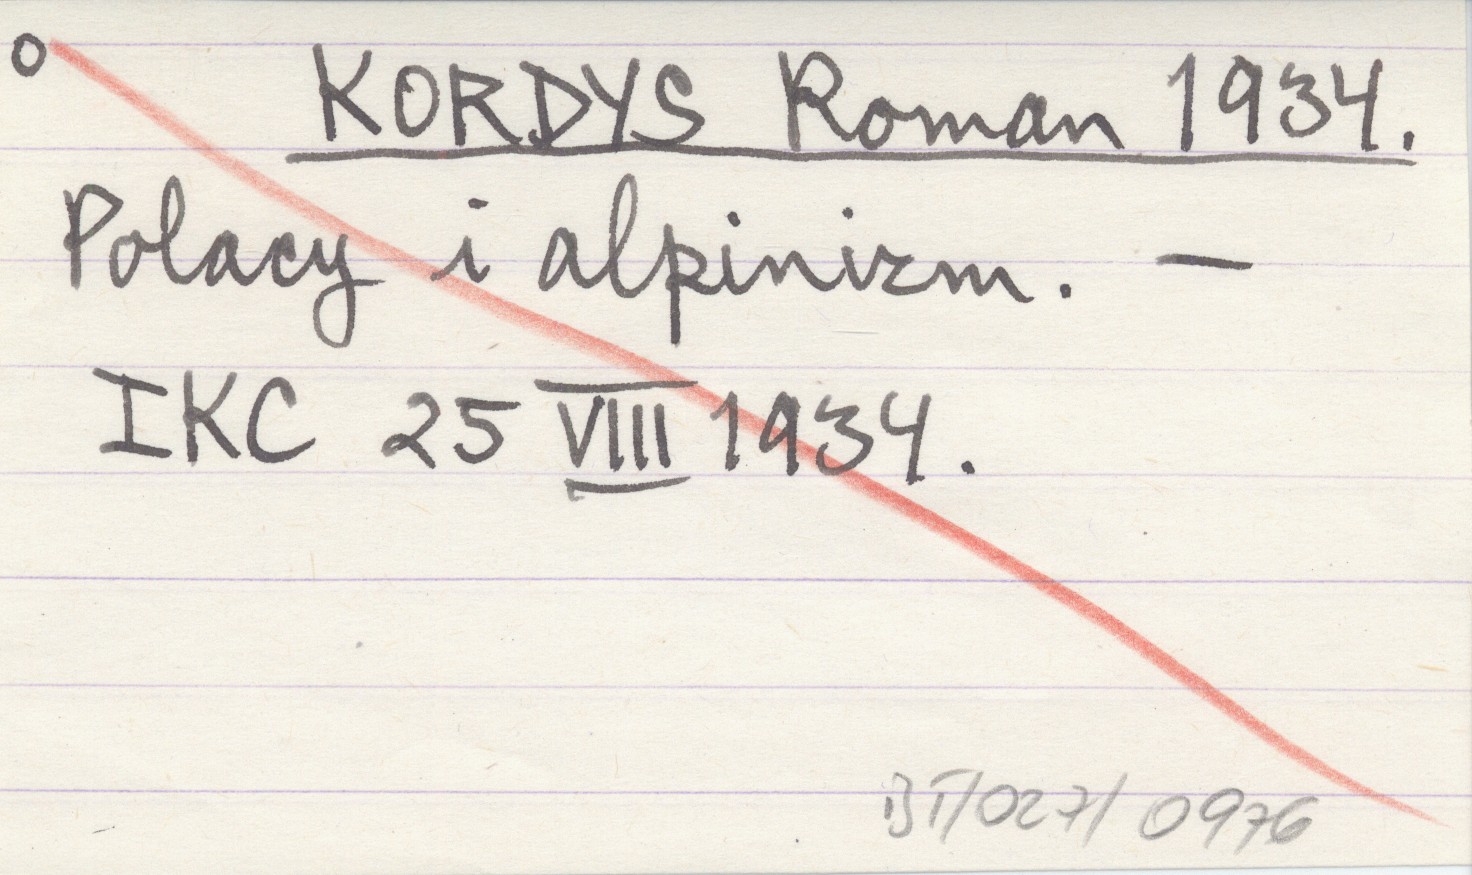 o KORDYS Roman 1934.
Polacy i alpinizm. —
IKC 25 VIII 1934.
BT/027/0976